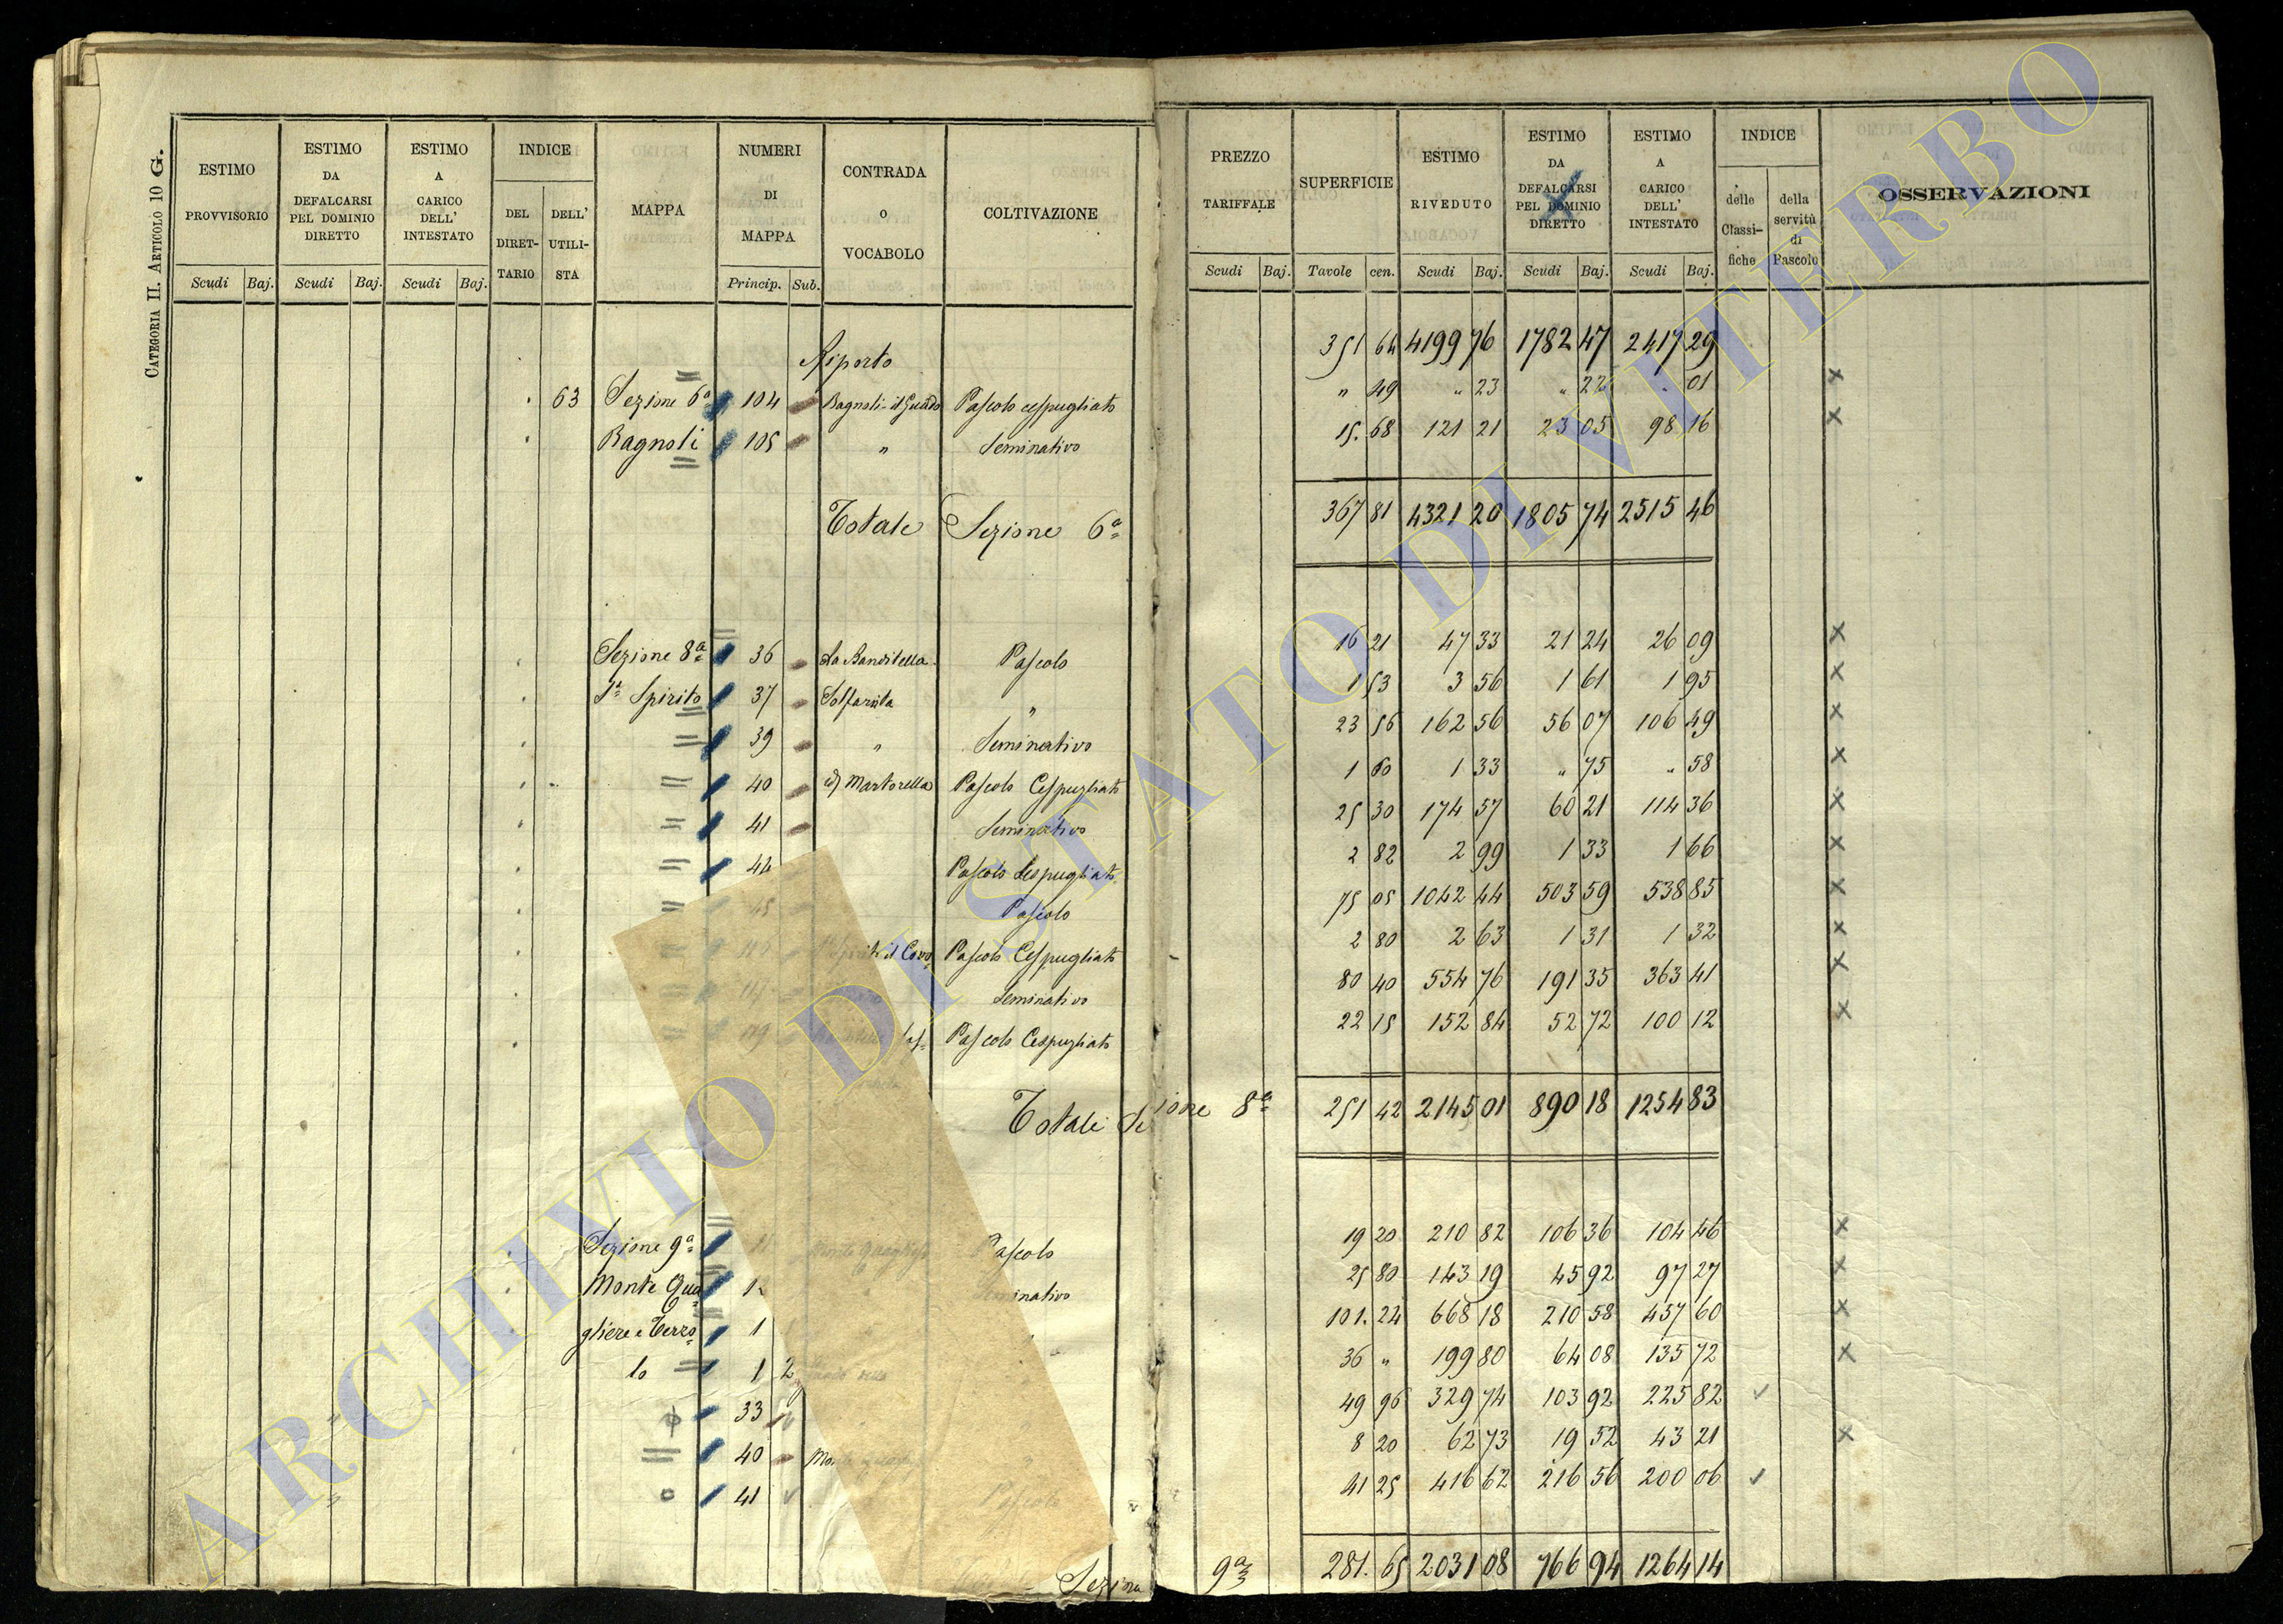 CATEGORIA II. ARTICOLO 10 G.
ESTIMO PROVVISORIO
Scudi Baj.
ESTIMO DA DEFALCARSI PEL DOMINIO DIRETTO
Scudi Baj.
ESTIMO A CARICO DELL' INTESTATO
Scudi Baj.
INDICE
DEL DIRET-TARIO
DELL' UTILI-STA
MAPPA
NUMERI DI MAPPA
Princip. Sub.
CONTRADA o VOCABOLO
COLTIVAZIONE
PREZZO TARIFFALE
Scudi Baj.
SUPERFICIE
Tavole cen.
ESTIMO RIVEDUTO
Scudi Baj.
ESTIMO DA DEFALCARSI PEL DOMINIO DIRETTO
Scudi Baj.
ESTIMO A CARICO DELL' INTESTATO
Scudi Baj.
INDICE
delle Classi-fiche
della servitù di Pascolo
OSSERVAZIONI
Riporto 351 64 4199 76 1782 47 2417 29
63 Sezione 6a 104 Bagnoli il Guado Pascolo cespugliato " 49 " 23 " 22 . 01 x
Bagnoli 105 " Seminativo 15. 68 121 21 23 05 98 16 x
Totale Sezione 6a 367 81 4321 20 1805 74 2515 46
Sezione 8a 36 La Banditella Pascolo 16 21 47 33 21 24 26 09 x
Sto Spirito 37 Solfarata " 1 53 3 56 1 61 1 95 x
= 39 " Seminativo 23 56 162 56 56 07 106 49 x
= 40 Martorella Pascolo Cespugliato 1 60 1 33 " 75 " 58 x
= 41 Seminativo 25 30 174 57 60 21 114 36 x
= 44 Pascolo Cespugliato 2 82 2 99 1 33 1 66 x
= 45 Pascolo 75 05 1042 44 503 59 538 85 x
= il Covo Pascolo Cespugliato 2 80 2 63 1 31 1 32 x
= Seminativo 80 40 554 76 191 35 363 41 x
= Pascolo Cespugliato 22 15 152 84 52 72 100 12 x
Totale Sezione 8a 251 42 2145 01 890 18 1254 83
Sezione 9a Pascolo 19 20 210 82 106 36 104 46 x
Monte Qua Seminativo 25 80 143 19 45 92 97 27 x
gliere e Terzo 1 101. 24 668 18 210 58 457 60 x
lo = 1 2 36 " 199 80 64 08 135 72 x
33 49 96 329 74 103 92 225 82
= 40 8 20 62 73 19 52 43 21 x
41 Pascolo 41 25 416 62 216 56 200 06
Sezione 9a 281. 65 2031 08 766 94 1264 14
ARCHIVIO DI STATO DI VITERBO